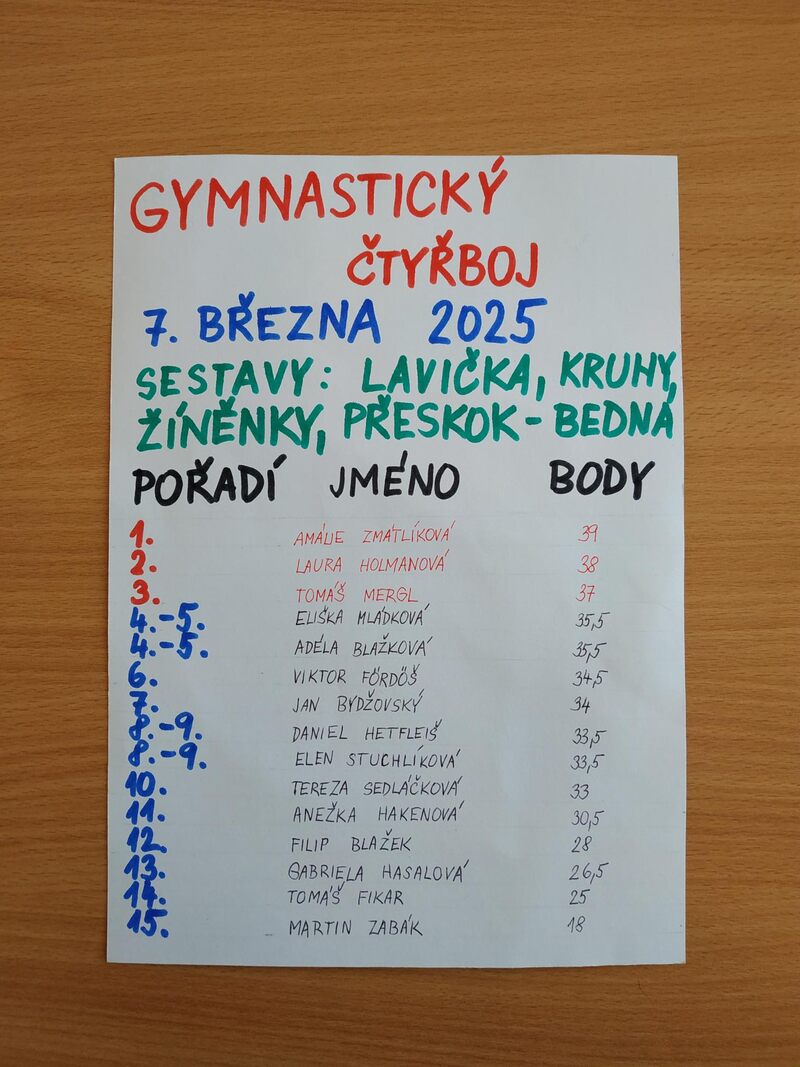 GYMNASTICKÝ
ČTYŘBOJ
7. BŘEZNA 2025
SESTAVY: LAVIČKA, KRUHY,
ŽÍNĚNKY, PŘESKOK - BEDNA
POŘADÍ JMÉNO BODY
1. AMÁLIE ZMÁTLÍKOVÁ 39
2. LAURA HOLMANOVÁ 38
3. TOMÁŠ MERGL 37
4.-5. ELIŠKA MLÁDKOVÁ 35,5
4.-5. ADÉLA BLAŽKOVÁ 35,5
6. VIKTOR FÖRDÖŠ 34,5
7. JAN BYDŽOVSKÝ 34
8.-9. DANIEL HETFLEIŠ 33,5
8.-9. ELEN STUCHLÍKOVÁ 33,5
10. TEREZA SEDLÁČKOVÁ 33
11. ANEŽKA HAKENOVÁ 30,5
12. FILIP BLAŽEK 28
13. GABRIELA HASALOVÁ 26,5
14. TOMÁŠ FIKAR 25
15. MARTIN ZABÁK 18